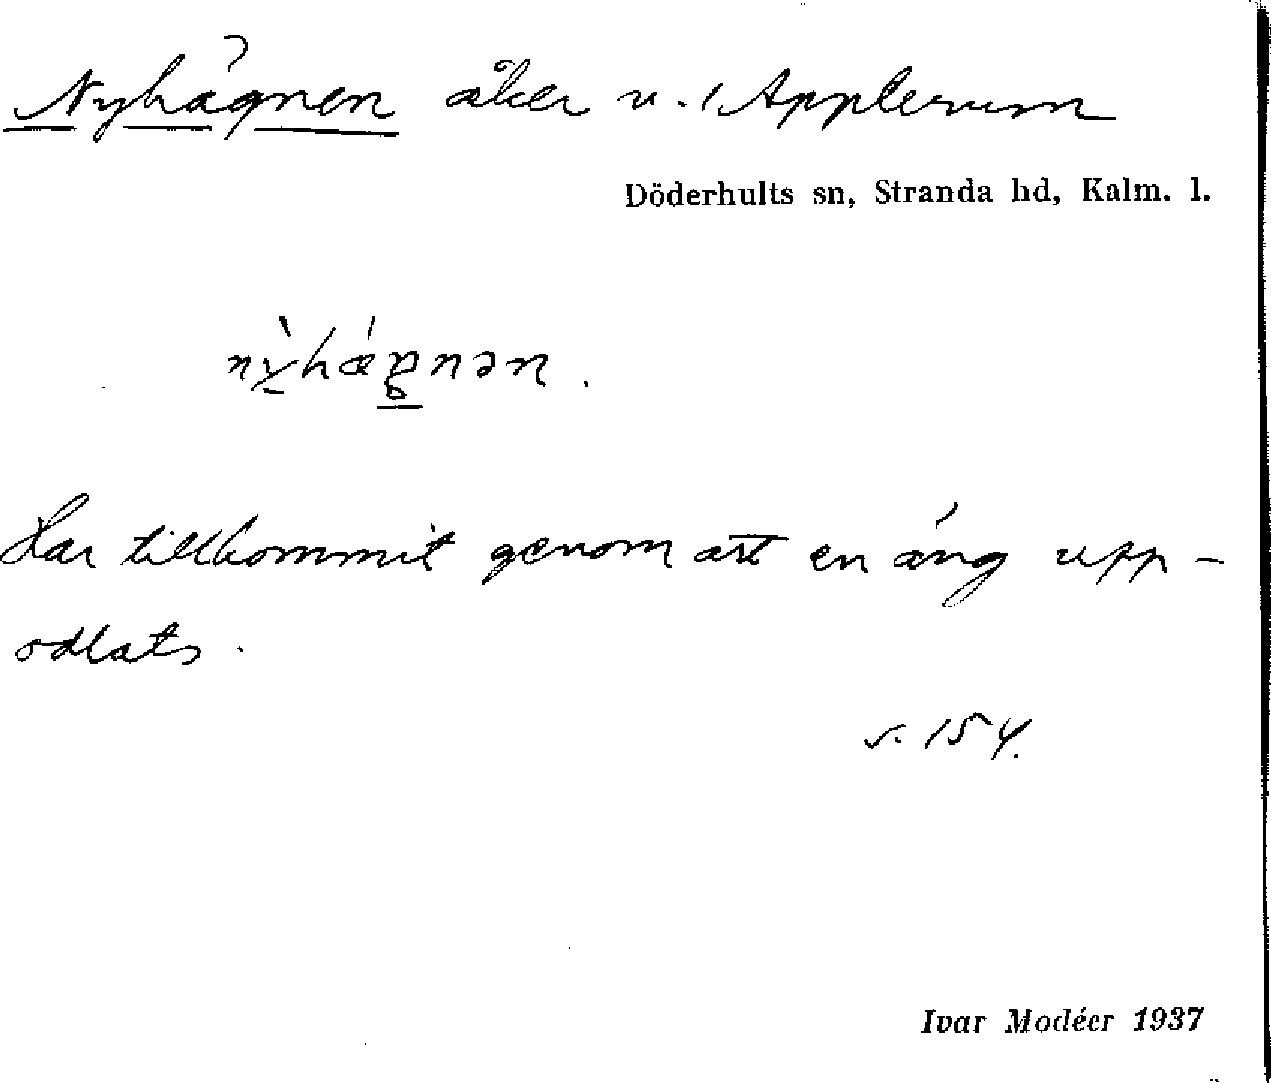 Nyhägnen åker v. Applerum
Döderhults sn, Stranda hd, Kalm. l.
Har tillkommit genom att en äng upp-
odlats.
s. 154.
Ivar Modéer 1937